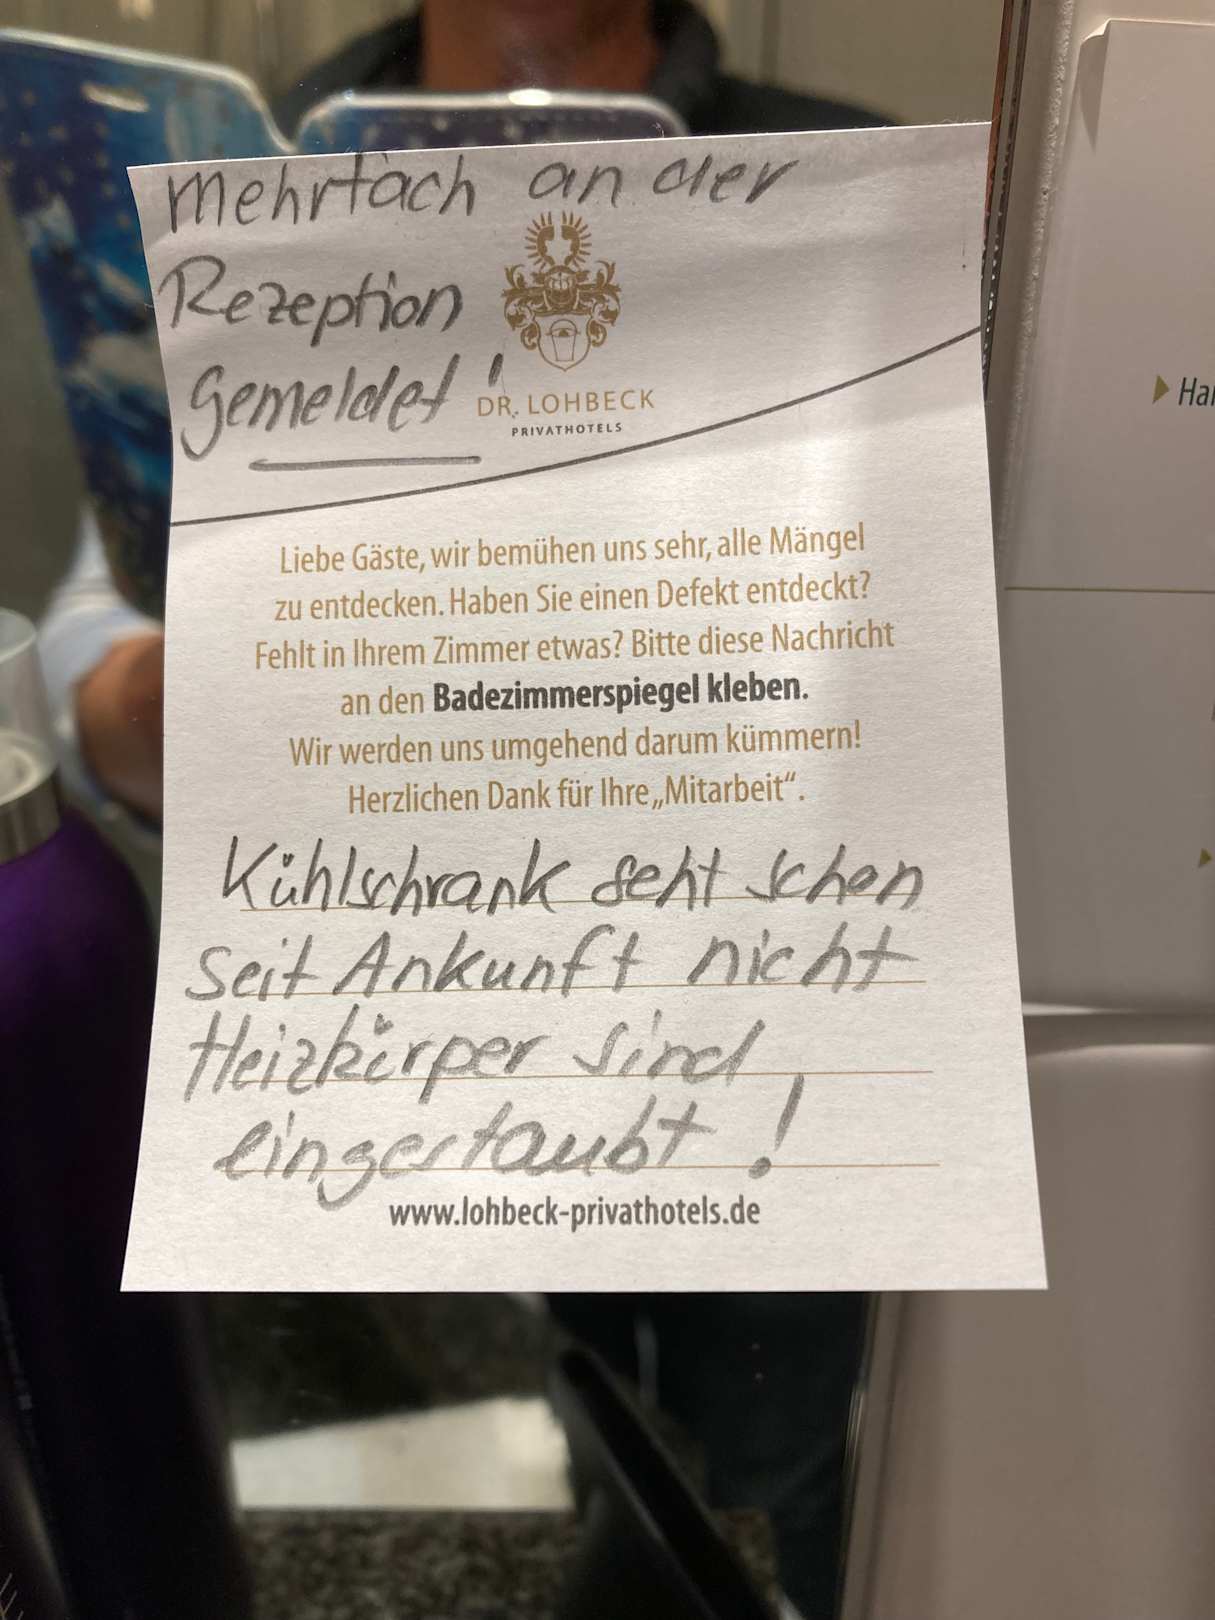 mehrfach an der
Rezeption
gemeldet!
DR. LOHBECK
PRIVATHOTELS
Liebe Gäste, wir bemühen uns sehr, alle Mängel
zu entdecken. Haben Sie einen Defekt entdeckt?
Fehlt in Ihrem Zimmer etwas? Bitte diese Nachricht
an den Badezimmerspiegel kleben.
Wir werden uns umgehend darum kümmern!
Herzlichen Dank für Ihre „Mitarbeit“.
Kühlschrank geht schon
seit Ankunft nicht
Heizkörper sind
eingestaubt!
www.lohbeck-privathotels.de